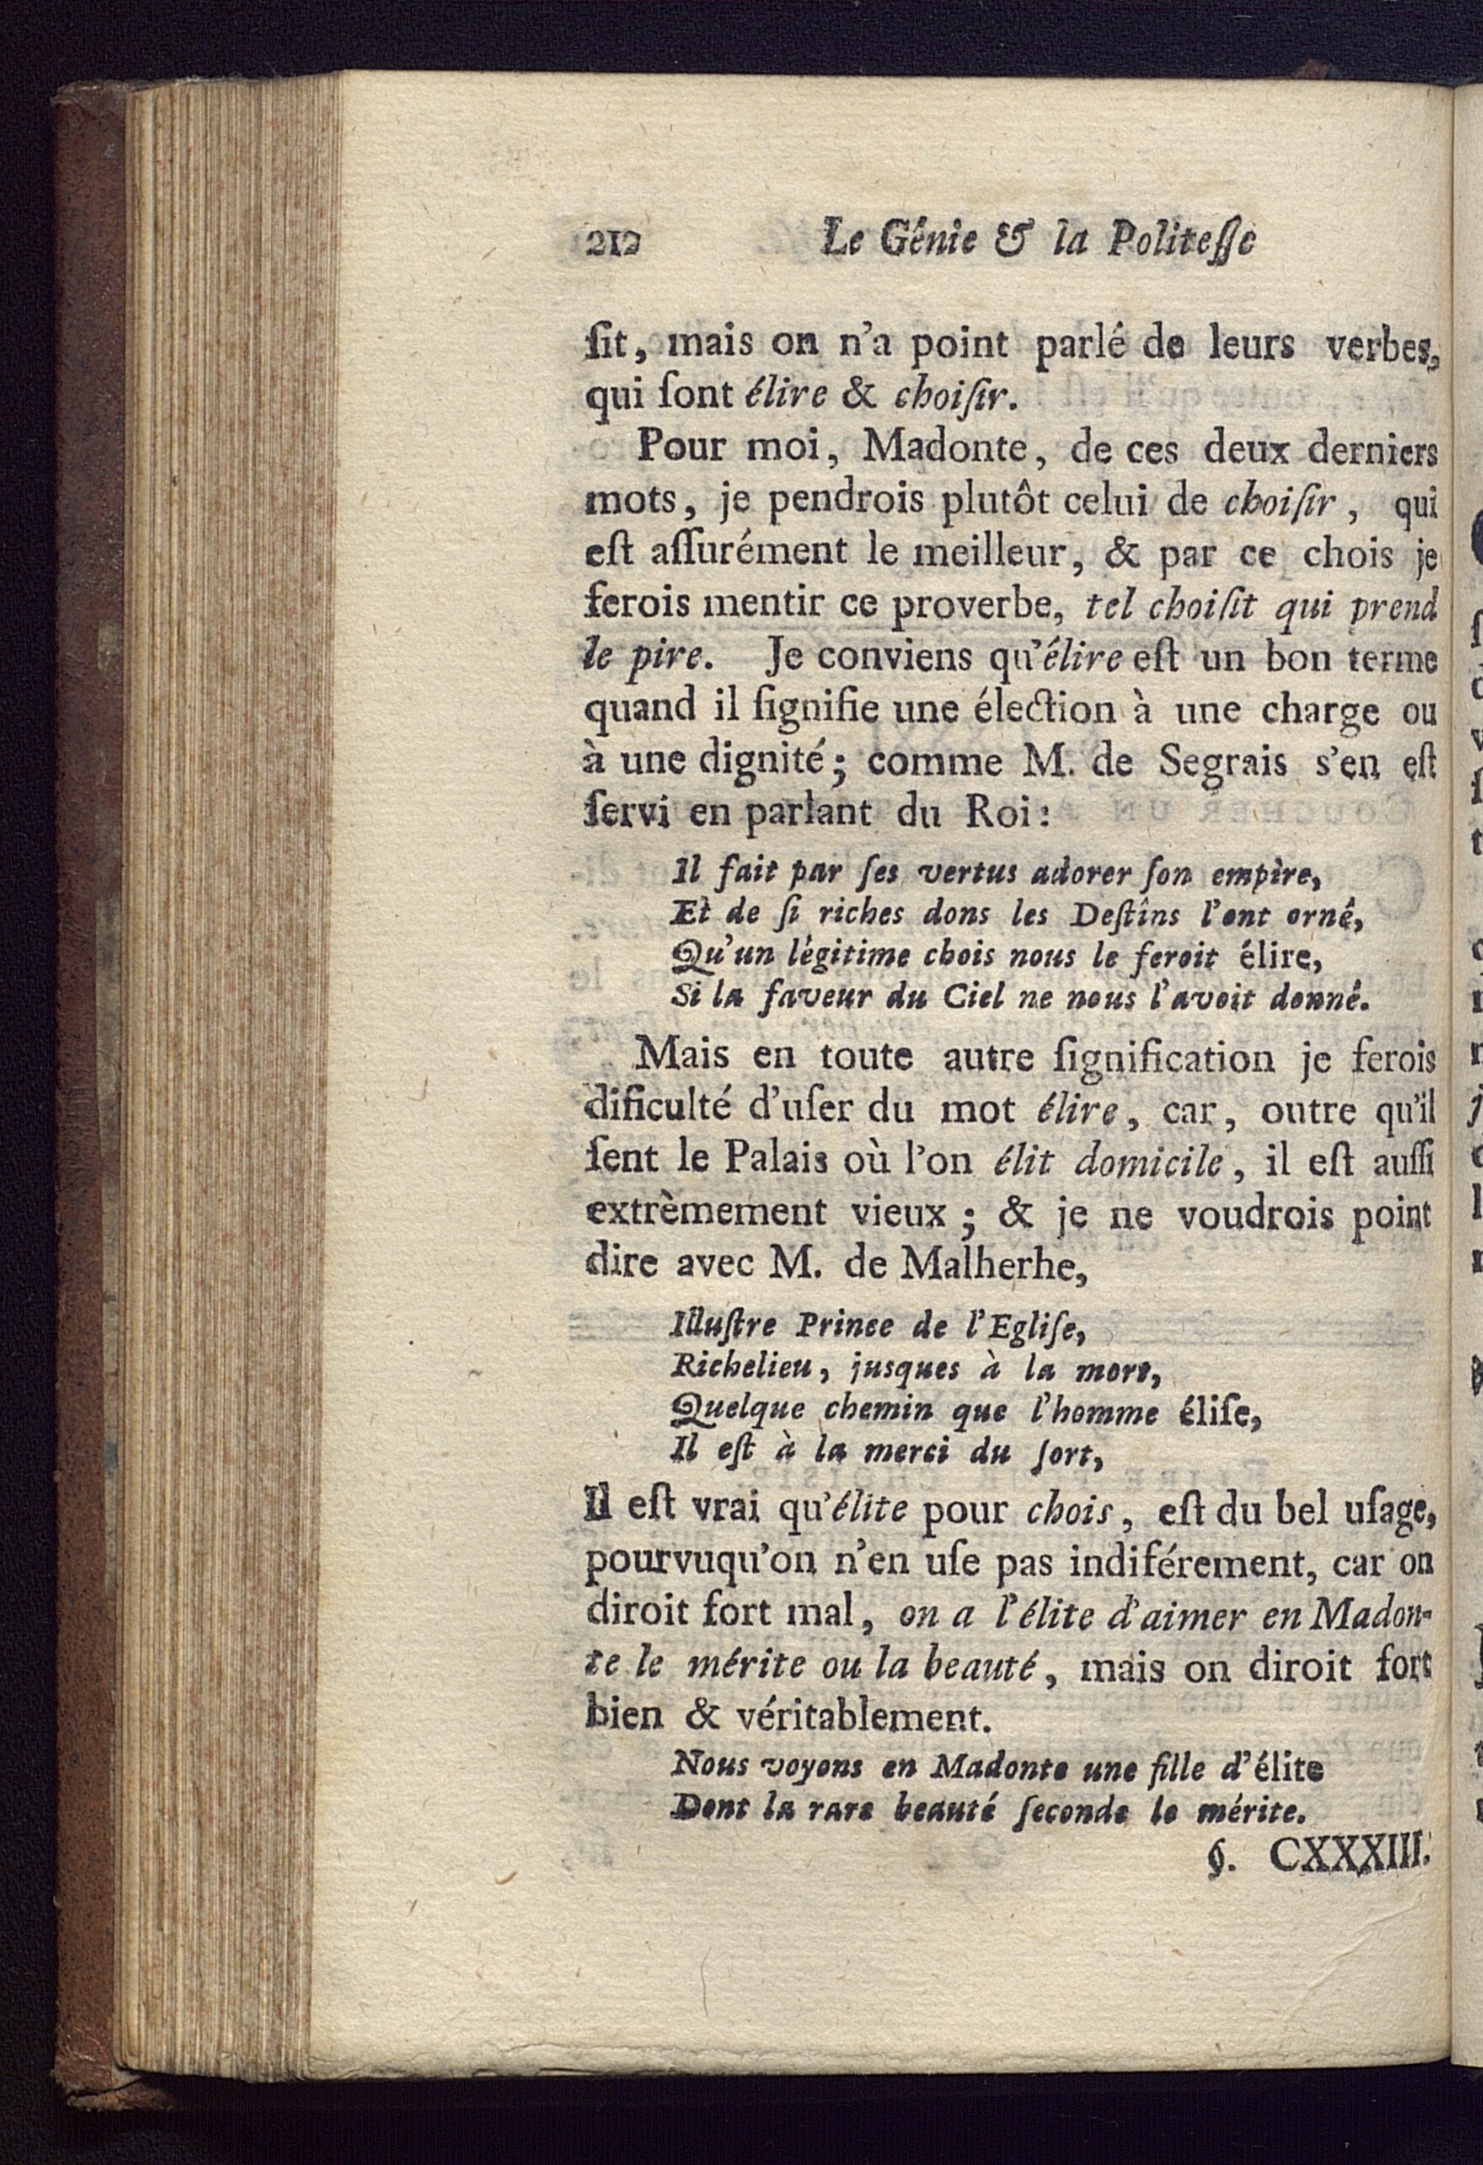 212 Le Génie & la Politeſſe
ſit, mais on n'a point parlé de leurs verbes,
qui ſont élire & choiſir.
Pour moi, Madonte, de ces deux derniers
mots, je pendrois plutôt celui de choiſir, qui
eſt aſſurément le meilleur, & par ce chois je
ferois mentir ce proverbe, tel choiſit qui prend
le pire. Je conviens qu'élire eſt un bon terme
quand il ſignifie une élection à une charge ou
à une dignité; comme M. de Segrais s'en eſt
ſervi en parlant du Roi:
Il fait par ſes vertus adorer ſon empire,
Et de ſi riches dons les Deſtins l'ont orné,
Qu'un légitime chois nous le feroit élire,
Si la faveur du Ciel ne nous l'avoit donné.
Mais en toute autre ſignification je ferois
dificulté d'uſer du mot élire, car, outre qu'il
ſent le Palais où l'on élit domicile, il eſt auſſi
extrèmement vieux; & je ne voudrois point
dire avec M. de Malherhe,
Illuſtre Prince de l'Egliſe,
Richelieu, jusques à la mort,
Quelque chemin que l'homme éliſe,
Il eſt à la merci du ſort,
Il eſt vrai qu'élite pour chois, eſt du bel uſage,
pourvuqu'on n'en uſe pas indiférement, car on
diroit fort mal, on a l'élite d'aimer en Madon-
te le mérite ou la beauté, mais on diroit fort
bien & véritablement.
Nous voyons en Madonte une fille d'élite
Dont la rare beauté ſeconde le mérite.
§. CXXXIII.